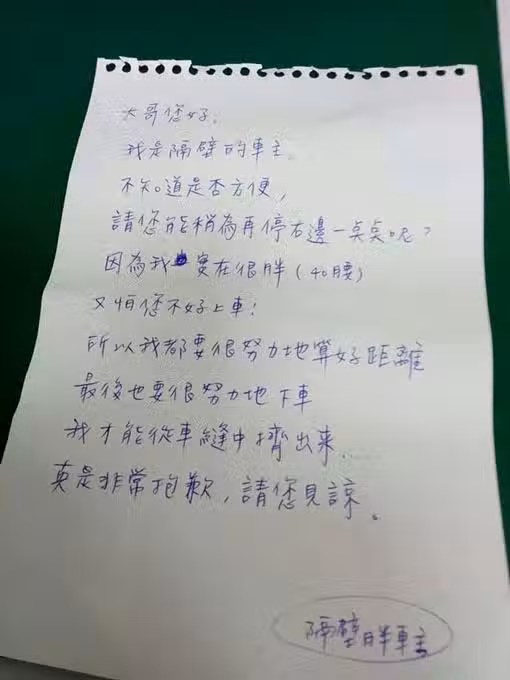 大哥您好,
我是隔壁的車主.
不知道是否方便,
請您能稍為再停右邊一點點呢?
因為我實在很胖(40腰)
又怕您不好上車!
所以我都要很努力地算好距離
最後也要很努力地下車
我才能從車縫中擠出來......
真是非常抱歉,請您見諒。
隔壁胖車主